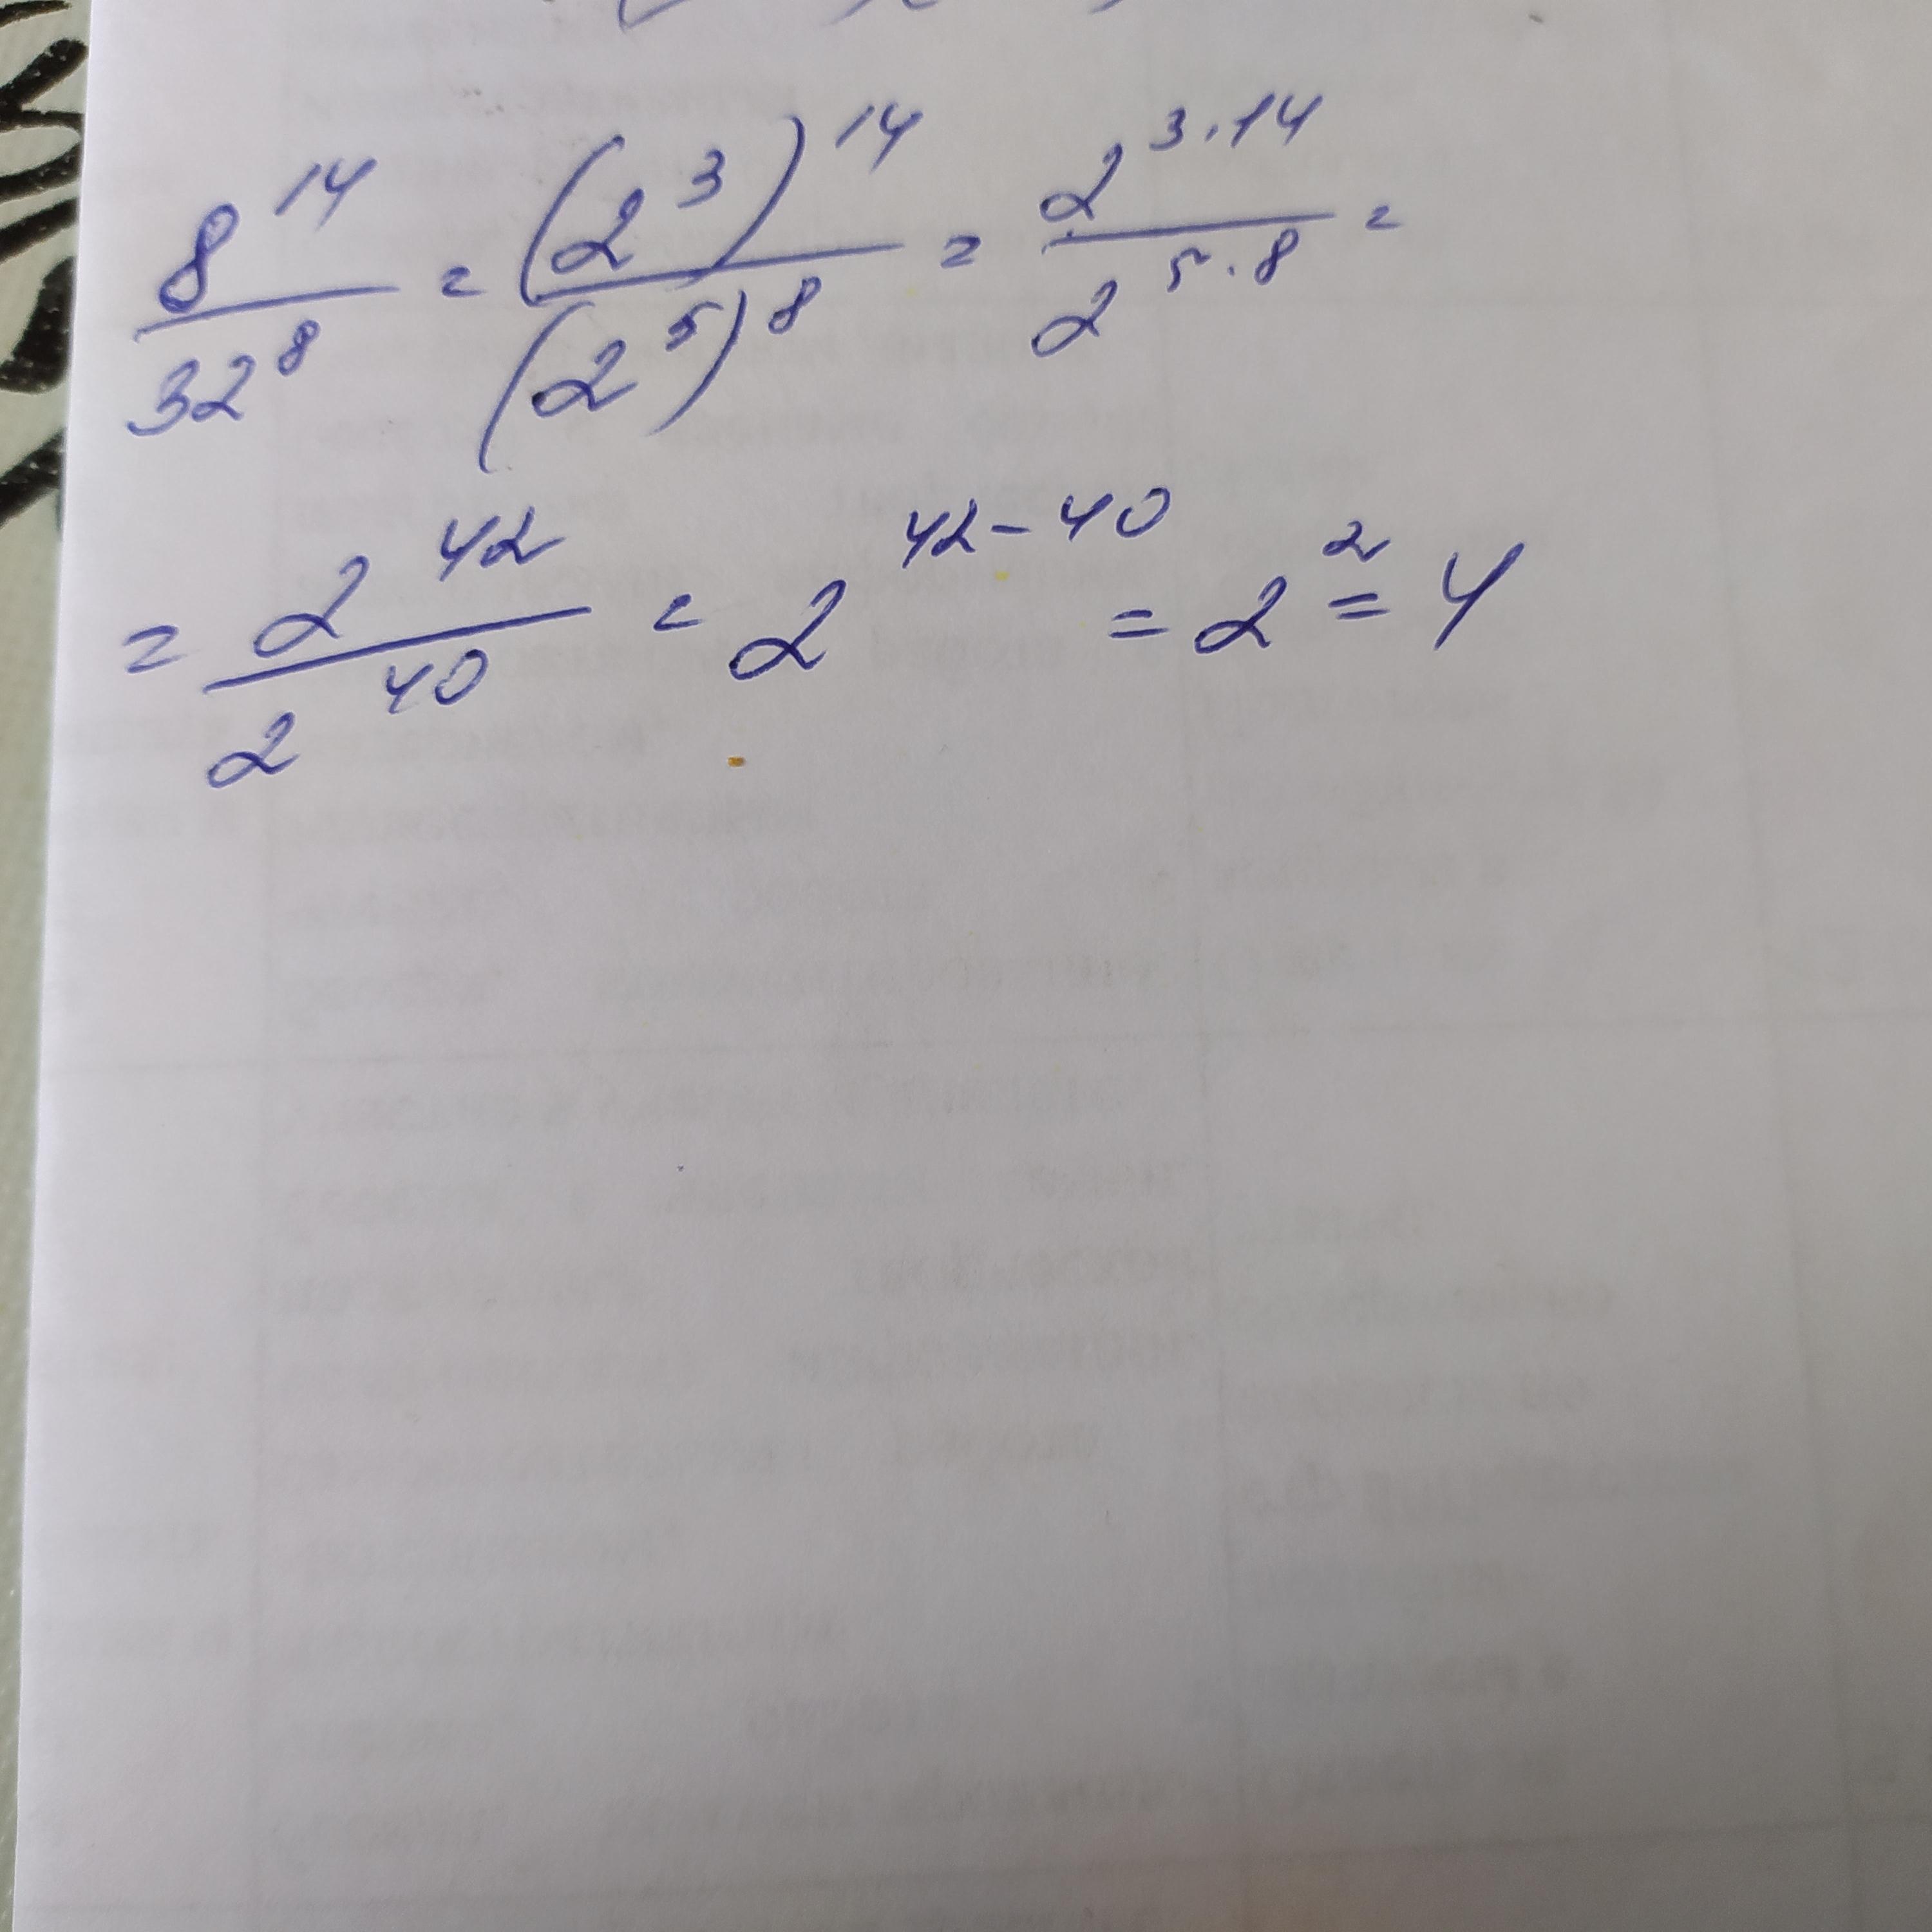 8^14/32^8 = (2^3)^14/(2^5)^8 = 2^3·14/2^5·8 =
= 2^42/2^40 = 2^42-40 = 2^2 = 4